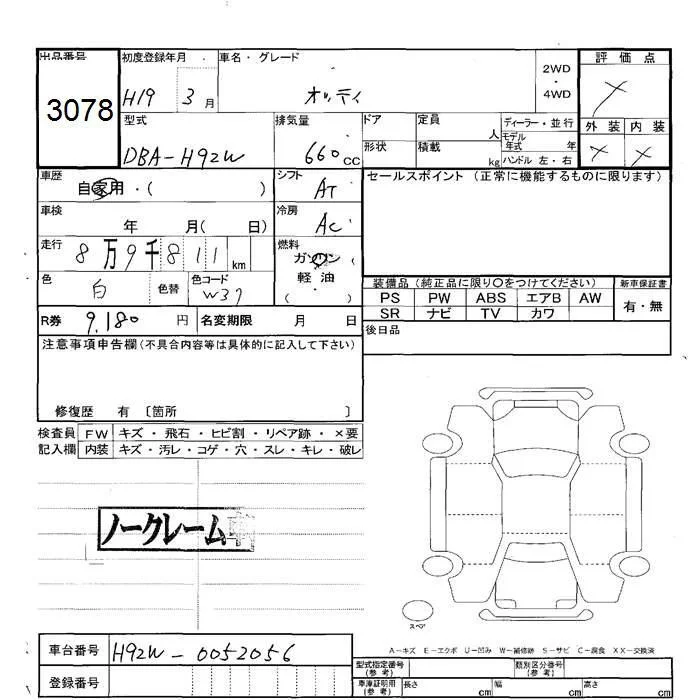 出品番号
3078
初度登録年月 H19 3月
車名・グレード オッティ
2WD ・ 4WD
評価点 ×
外装 × 内装 ×
型式 DBA-H92W
排気量 660cc
ドア 定員 人
形状 積載 kg
ディーラー・並行
モデル年式 年
ハンドル 左・右
車歴 自家用・( )
シフト AT
セールスポイント (正常に機能するものに限ります)
車検 年 月( 日)
冷房 AC
走行 8万9千811km
燃料 ガソリン
軽油
( )
色 白 色替 色コード W37
装備品 (純正品に限り○をつけてください)
新車保証書
PS PW ABS エアB AW
有・無
SR ナビ TV カワ
R券 9,180円 名変期限 月 日
後日品
注意事項申告欄(不具合内容等は具体的に記入して下さい)
修復歴 有 〔箇所 〕
検査員 FW キズ・飛石・ヒビ割・リペア跡・×要
記入欄 内装 キズ・汚レ・コゲ・穴・スレ・キレ・破レ
ノークレーム車
スペア
A-キズ E-エクボ U-凹み W-補修跡 S-サビ C-腐食 XX-交換済
車台番号 H92W-0052056
登録番号
型式指定番号(参考) 類別区分番号(参考)
車庫証明用(参考) 長さ cm 幅 cm 高さ cm